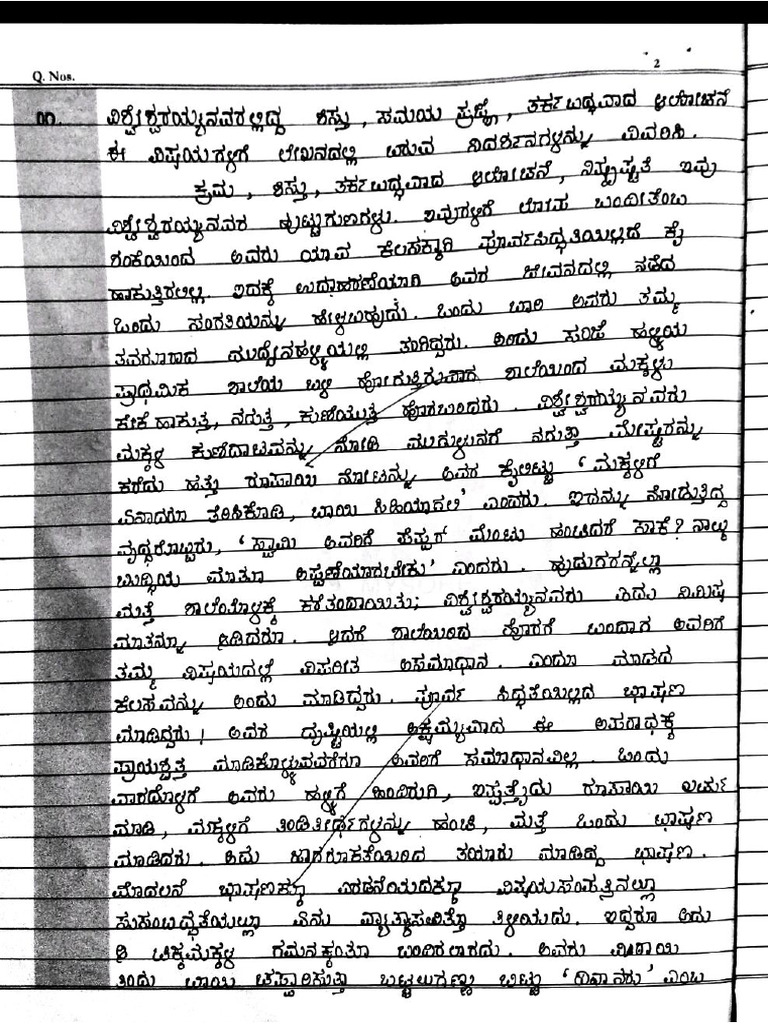 2
Q. Nos.
೧೧. ವಿಶ್ವೇಶ್ವರಯ್ಯನವರಲ್ಲಿದ್ದ ಶಿಸ್ತು, ಸಮಯ ಪ್ರಜ್ಞೆ, ತರ್ಕಬದ್ಧವಾದ ಆಲೋಚನೆ
ಈ ವಿಷಯಗಳಿಗೆ ಲೇಖನದಲ್ಲಿ ಬರುವ ನಿದರ್ಶನಗಳನ್ನು ವಿವರಿಸಿ.
ಕ್ರಮ, ಶಿಸ್ತು, ತರ್ಕಬದ್ಧವಾದ ಆಲೋಚನೆ, ನಿಷ್ಕೃಷ್ಟತೆ ಇವು
ವಿಶ್ವೇಶ್ವರಯ್ಯನವರ ಹುಟ್ಟುಗುಣಗಳು. ಇವುಗಳಿಗೆ ಲೋಪ ಬಂದೀತೆಂಬ
ಶಂಕೆಯಿಂದ ಅವರು ಯಾವ ಕೆಲಸಕ್ಕಾಗಿ ಪೂರ್ವಸಿದ್ಧತೆಯಿಲ್ಲದೆ ಕೈ
ಹಾಕುತ್ತಿರಲಿಲ್ಲ. ಇದಕ್ಕೆ ಉದಾಹರಣೆಯಾಗಿ ಅವರ ಜೀವನದಲ್ಲಿ ನಡೆದ
ಒಂದು ಸಂಗತಿಯನ್ನು ಹೇಳಬಹುದು. ಒಂದು ಬಾರಿ ಅವರು ತಮ್ಮ
ತವರೂರಾದ ಮುದ್ದೇನಹಳ್ಳಿಯಲ್ಲಿ ತಂಗಿದ್ದರು. ಅಂದು ಸಂಜೆ ಹಳ್ಳಿಯ
ಪ್ರಾಥಮಿಕ ಶಾಲೆಯ ಬಳಿ ಹೋಗುತ್ತಿರುವಾಗ ಶಾಲೆಯಿಂದ ಮಕ್ಕಳು
ಕೇಕೆ ಹಾಕುತ್ತ, ನಗುತ್ತ, ಕುಣಿಯುತ್ತ ಹೊರಬಂದರು. ವಿಶ್ವೇಶ್ವರಯ್ಯನವರು
ಮಕ್ಕಳ ಕುಣಿದಾಟವನ್ನು ನೋಡಿ ಮುಗುಳುನಗೆ ನಗುತ್ತಾ ಮೇಷ್ಟರನ್ನು
ಕರೆದು ಹತ್ತು ರೂಪಾಯಿ ನೋಟನ್ನು ಅವರ ಕೈಲಿಟ್ಟು 'ಮಕ್ಕಳಿಗೆ
ಏನಾದರೂ ತೆಗೆಸಿಕೊಡಿ, ಬಾಯಿ ಸಿಹಿಯಾಗಲಿ' ಎಂದರು. ಇದನ್ನು ನೋಡುತ್ತಿದ್ದ
ವೃದ್ಧರೊಬ್ಬರು, 'ಸ್ವಾಮಿ ಅವರಿಗೆ ಪೆಪ್ಪರ್ ಮೆಂಟು ಹಂಚಿದರೆ ಸಾಕೆ? ನಾಲ್ಕು
ಬುದ್ಧಿಯ ಮಾತೂ ಅಪ್ಪಣೆಯಾಗಬೇಕು' ಎಂದರು. ಹುಡುಗರನ್ನೆಲ್ಲಾ
ಮತ್ತೆ ಶಾಲೆಯೊಳಕ್ಕೆ ಕರೆತಂದಾಯಿತು; ವಿಶ್ವೇಶ್ವರಯ್ಯನವರು ಐದು ನಿಮಿಷ
ಮಾತನ್ನೂ ಆಡಿದರೂ. ಆದರೆ ಶಾಲೆಯಿಂದ ಹೊರಗೆ ಬಂದಾಗ ಅವರಿಗೆ
ತಮ್ಮ ವಿಷಯದಲ್ಲೆ ವಿಪರೀತ ಅಸಮಾಧಾನ. ಎಂದೂ ಮಾಡದ
ಕೆಲಸವನ್ನು ಅಂದು ಮಾಡಿದ್ದರು. ಪೂರ್ವ ಸಿದ್ಧತೆಯಿಲ್ಲದ ಭಾಷಣ
ಮಾಡಿದ್ದರು! ಅವರ ದೃಷ್ಟಿಯಲ್ಲಿ ಅಕ್ಷಮ್ಯವಾದ ಈ ಅಪರಾಧಕ್ಕೆ
ಪ್ರಾಯಶ್ಚಿತ್ತ ಮಾಡಿಕೊಳ್ಳುವವರೆಗೂ ಅವರಿಗೆ ಸಮಾಧಾನವಿಲ್ಲ. ಒಂದು
ವಾರದೊಳಗೆ ಅವರು ಹಳ್ಳಿಗೆ ಹಿಂದಿರುಗಿ, ಇಪ್ಪತ್ತೈದು ರೂಪಾಯಿ ಖರ್ಚು
ಮಾಡಿ, ಮಕ್ಕಳಿಗೆ ತಿಂಡಿತೀರ್ಥಗಳನ್ನು ಹಂಚಿ, ಮತ್ತೆ ಒಂದು ಭಾಷಣ
ಮಾಡಿದರು. ಅದು ಜಾಗರೂಕತೆಯಿಂದ ತಯಾರು ಮಾಡಿದ್ದ ಭಾಷಣ.
ಮೊದಲನೆ ಭಾಷಣಕ್ಕೂ ಎರಡನೆಯದಕ್ಕೂ ವಿಷಯಸಂಪತ್ತಿನಲ್ಲೂ
ಸುಸಂಬದ್ಧತೆಯಲ್ಲೂ ಏನು ವ್ಯಾತ್ಯಾಸವಿತ್ತೊ ತಿಳಿಯದು. ಇದ್ದರೂ ಅದು
ಆ ಚಿಕ್ಕಮಕ್ಕಳ ಗಮನಕ್ಕಂತೂ ಬಂದಿರಲಾರದು. ಅವರು ಮಿಠಾಯಿ
ತಿಂದು ಬಾಯಿ ಚಪ್ಪರಿಸುತ್ತಾ ಬಟ್ಟಲುಗಣ್ಣು ಬಿಟ್ಟು 'ದಿವಾನರು' ಎಂಬ